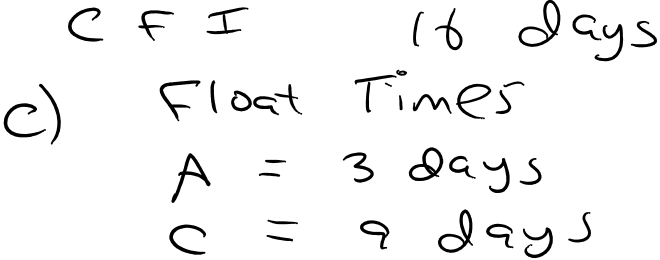 C F I 16 days
c) Float Times
A = 3 days
C = 9 days